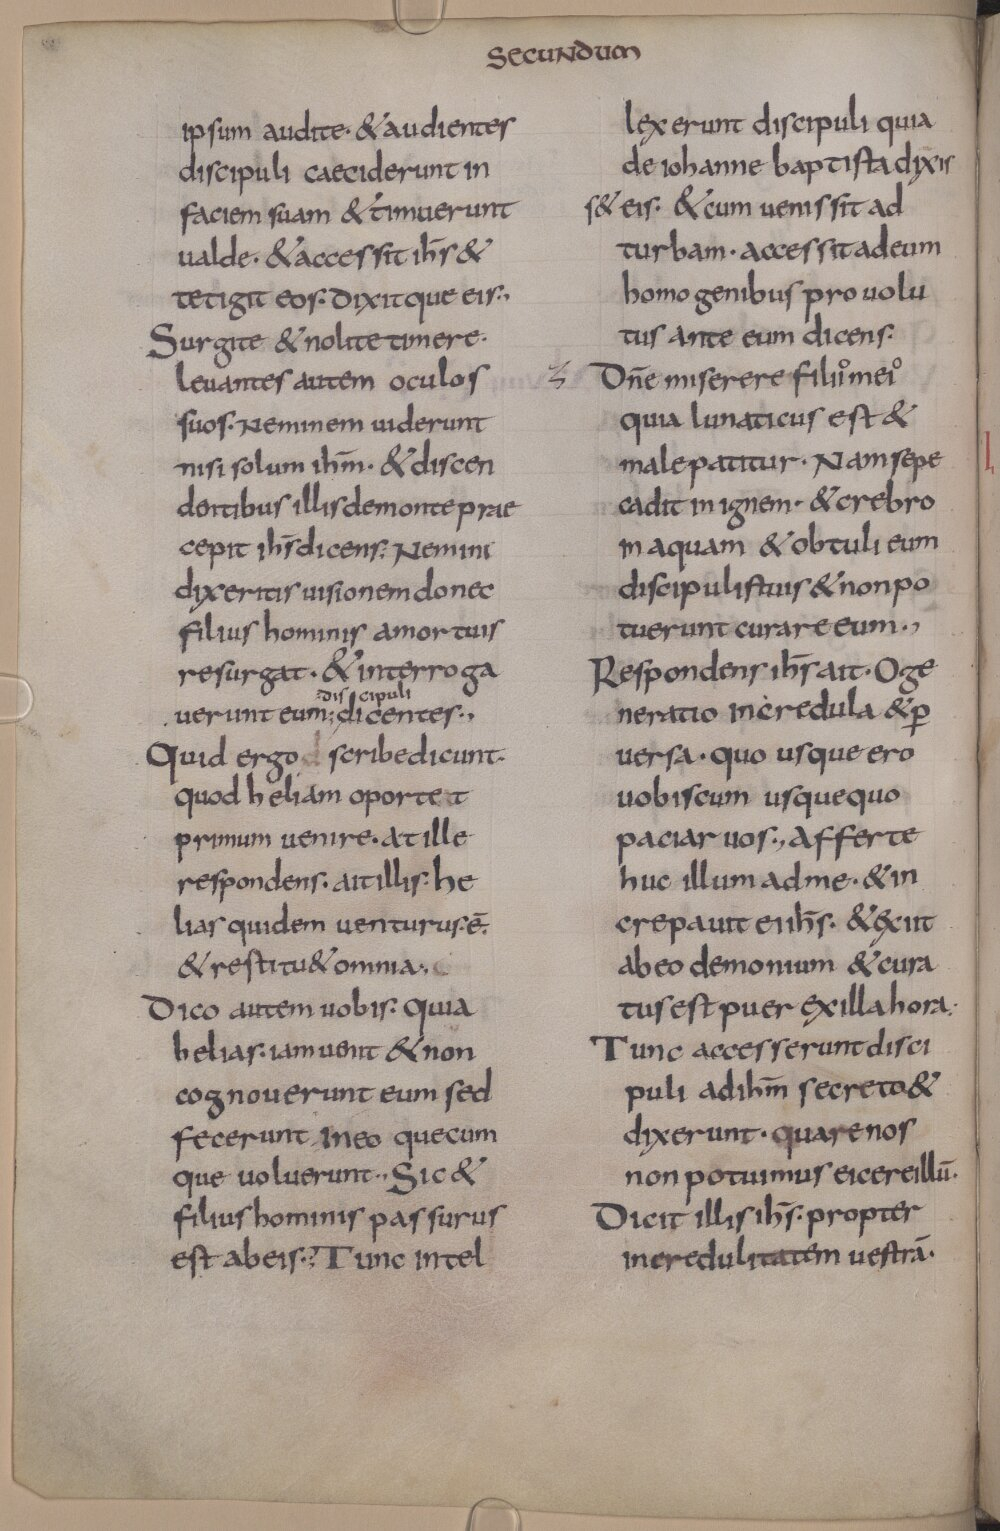 secundum
ipsum audite· & audientes
discipuli caeciderunt in
faciem suam & timuerunt
ualde· & accessit ih̅s &
tetigit eos· dixitque eis·,
Surgite & nolite timere·
leuantes autem oculos
suos· Neminem uiderunt
nisi solum ihm̅· & discen
dentibus illis demonte prae
cepit ih̅s dicens; Nemini
dixeritis uisionem donec
filius hominis amortuis
resurgat· & interroga
discipuli
uerunt eum; dicentes·,
Quid ergo scribe dicunt·
quod heliam oportet
primum uenire· at ille
respondens· ait illis· he
lias quidem uenturus· ē·
& restitu& omnia·,
Dico autem uobis· quia
helias· iam uenit & non
cognouerunt eum sed
fecerunt ineo quecum
que uoluerunt·, Sic &
filius hominis passurus
est abeis·, Tunc intel
lexerunt discipuli quia
de iohanne baptista dixis
s& eis· & cum uenissit ad
turbam· accessit adeum
homo genibus prouolu
tus ante eum dicens·
Dn̅e miserere filiıͦmeiͦ
quia lunaticus est &
male patitur· Nam sepe
cadit in ignem· & crebro
in aquam & obtuli eum
discipulis tuis & non po
tuerunt curare eum·,
Respondens ih̅s ait· O ge
neratio incredula & ꝑ
uersa· quo usque ero
uobiscum usquequo
paciar uos·, Afferte
huc illum ad me· & in
crepauit ei ih̅s· & exiit
ab eo demonium & cura
tus est puer ex illa hora·
Tunc accesserunt disci
puli ad ihm̅ secreto &
dixerunt· quare nos
non potuimus eicere illū·
Dicit illis ih̅s· propter
incredulitatem uestrā·